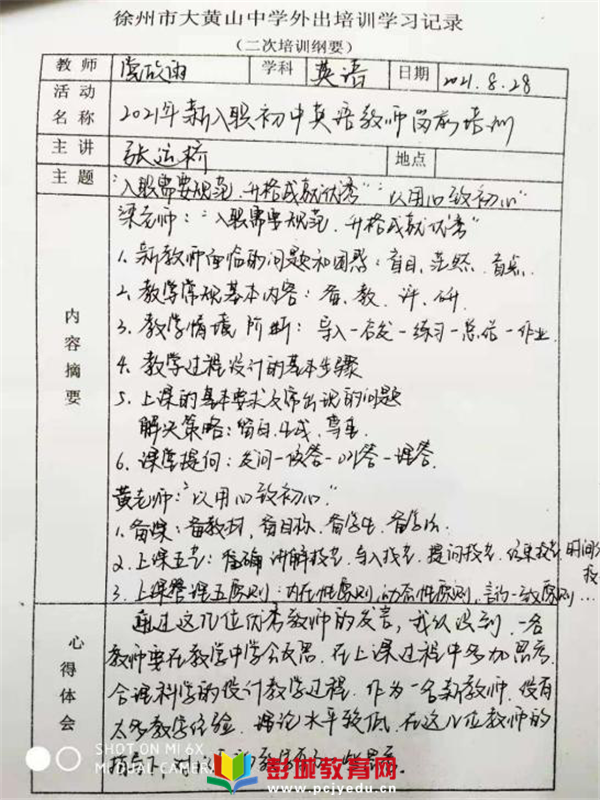 徐州市大黄山中学外出培训学习记录
（二次培训纲要）
教师 学科 英语 日期 2021.8.28
活动名称 2021年新入职初中英语教师岗前培训
主讲 张运桥 地点
主题 "入职需要规范,升格成就优秀" "以用心致初心"
内容摘要
梁老师:"入职需要规范,升格成就优秀"
1. 新教师面临的问题和困惑: 盲目、茫然、盲点.
2. 教学常规基本内容: 备、教、评、研.
3. 教学情境阶断: 导入-启发-练习-总结-作业.
4. 教学过程设计的基本步骤
5. 上课的基本要求及常出现的问题
解决策略: 留白、生成、尊重.
6. 课堂提问: 发问-候答-叫答-理答.
黄老师:"以用心致初心".
1. 备课: 备教材, 备目标, 备学生, 备学法.
2. 上课五考: 准确讲解技考, 导入技考, 提问技考, 结束技考, 时间
技
3. 上课管理五原则: 内在性原则, 动态性原则, 言行一致原则...
心得体会
通过这几位优秀教师的发言,我认识到,一名
教师要在教学中学会反思,在上课过程中多加思考
合理科学的设计教学过程. 作为一名新教师,没有
太多教学经验,理论水平较低,在这几位教师的
指导下,对
SHOT ON MI 6X
MI DUAL CAMERA
彭城教育网
www.pcjyedu.cn